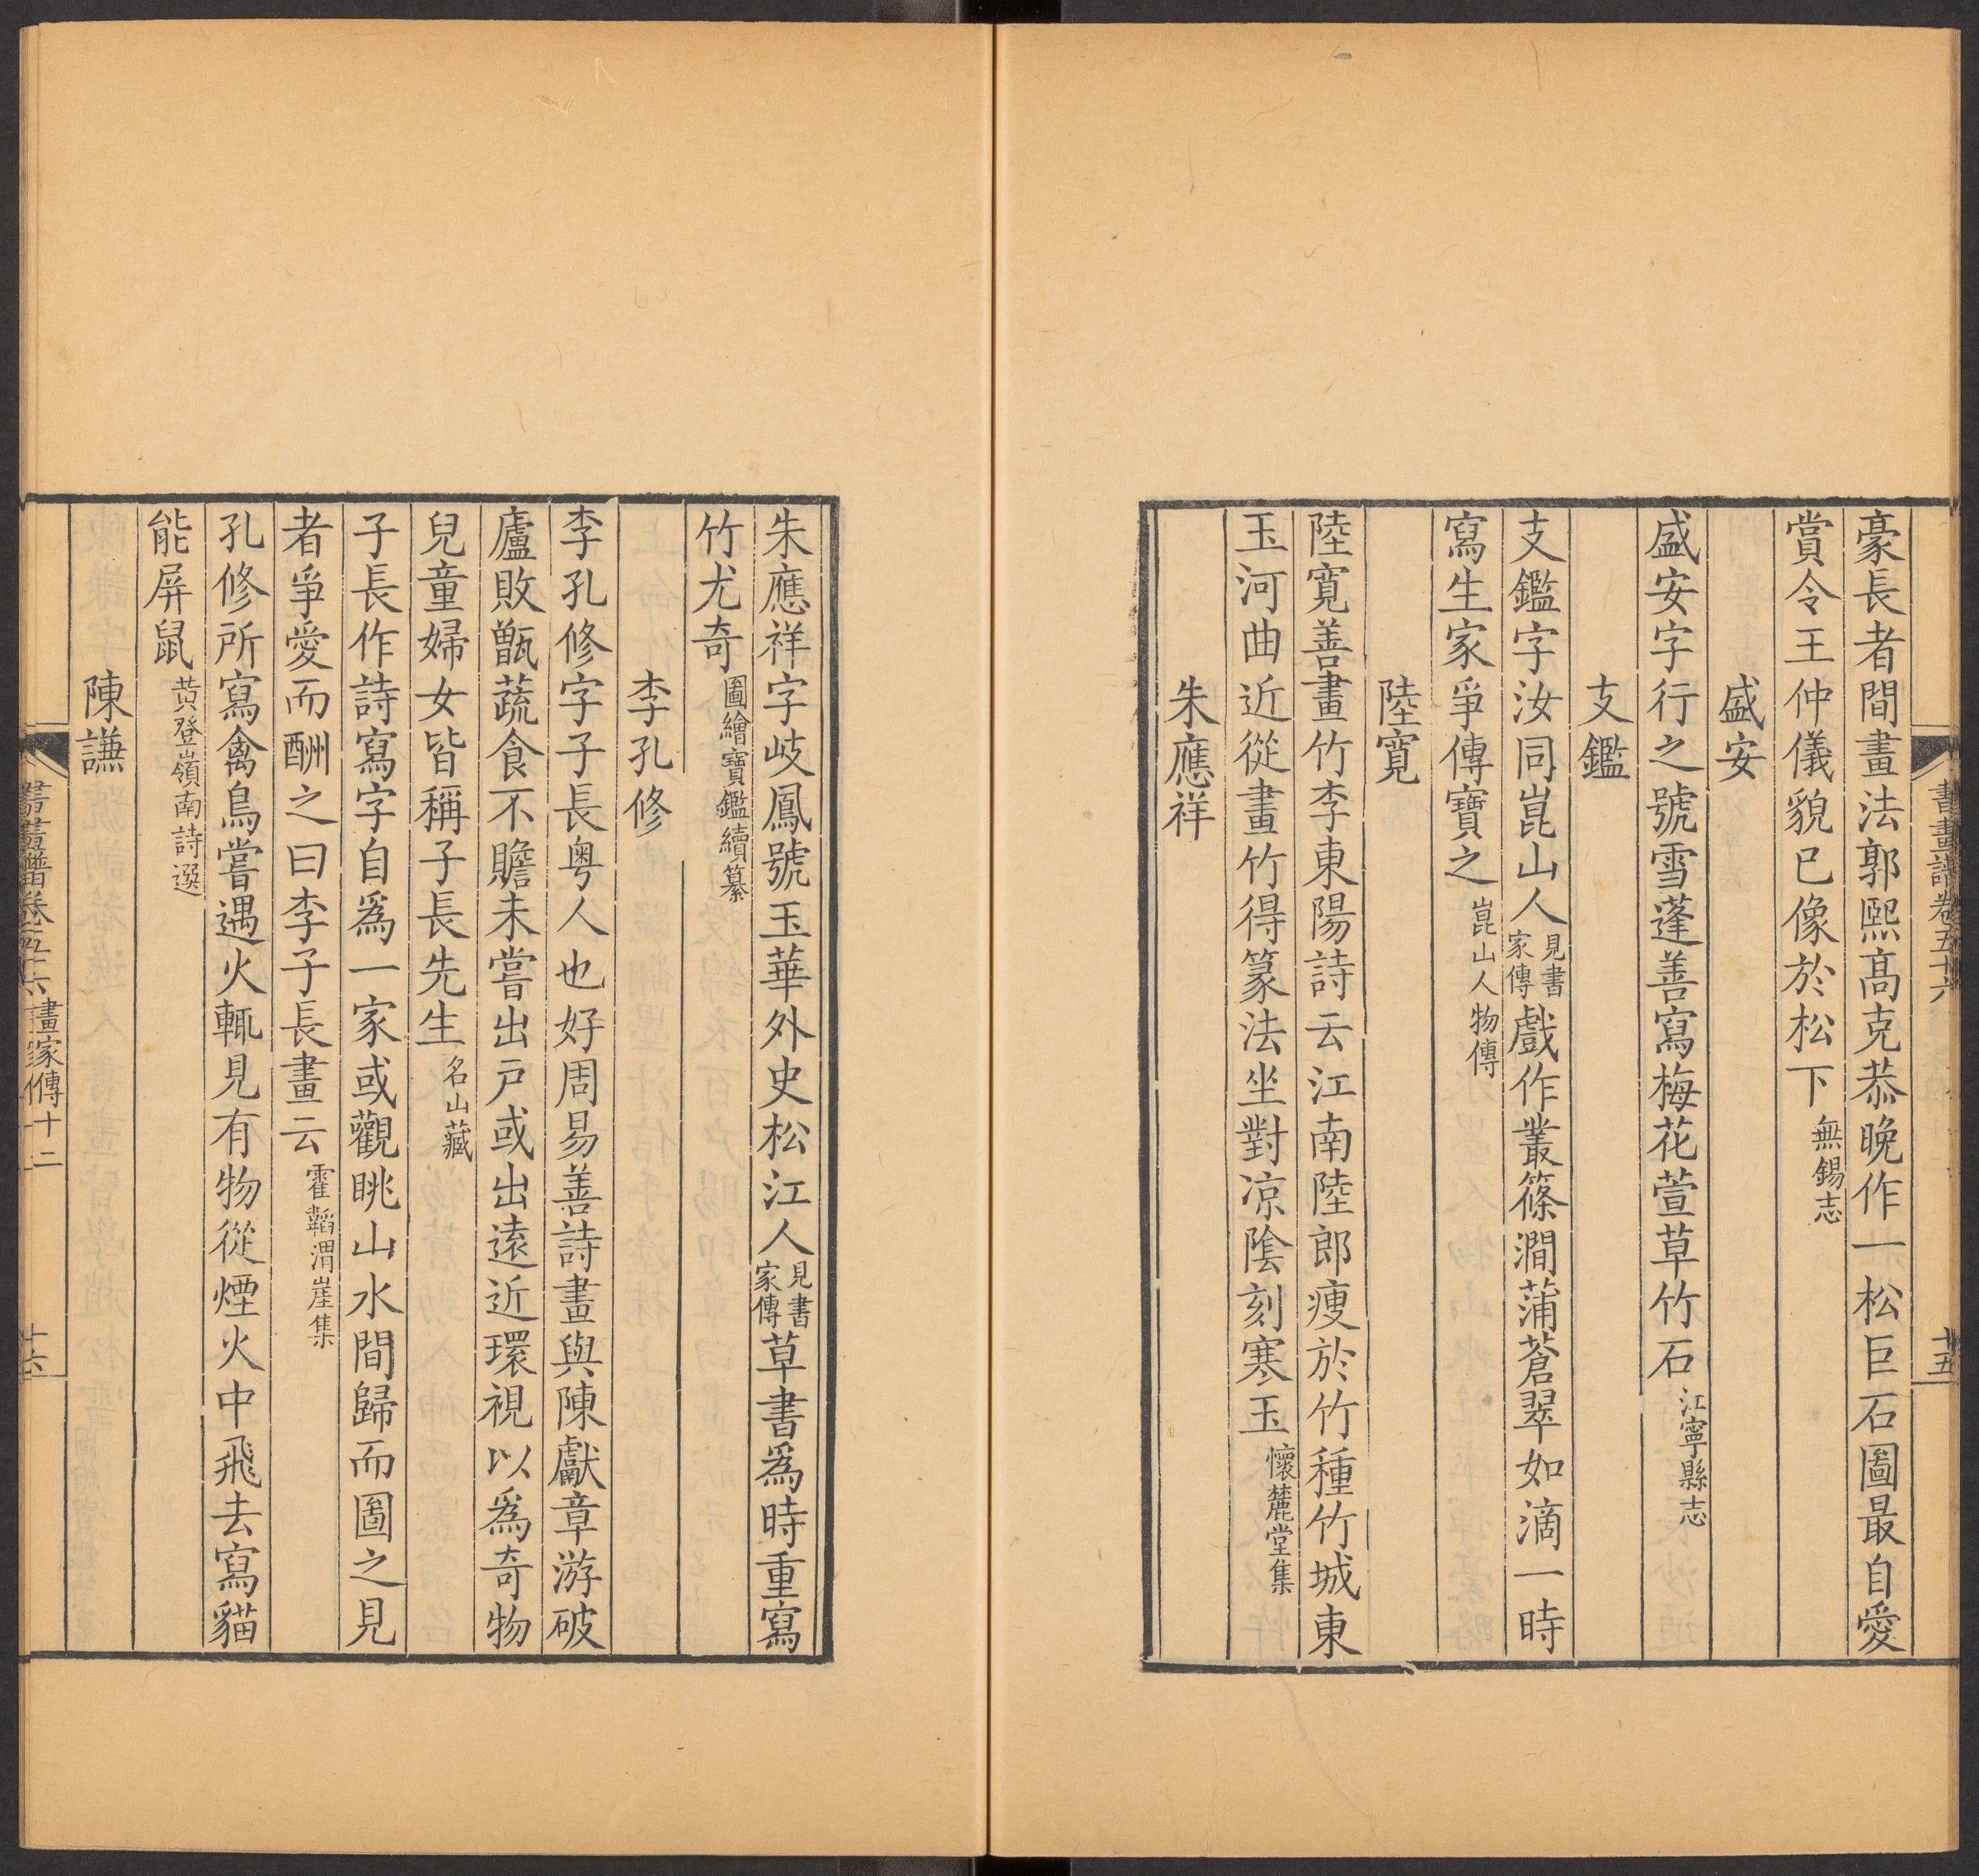 豪長者間畫法郭熙髙克恭晚作一松巨石圖最自愛
賞令王仲儀貌已像於松下無錫志
盛安
盛安字行之號雪蓬善寫梅花萱草竹石江寧縣志
支鑑
支鑑字汝同崑山人見書家傳戲作叢篠澗蒲蒼翠如滴一時
寫生家爭傳寶之崑山人物傳
陸寛
陸寛善畫竹李東陽詩云江南陸郎瘦於竹種竹城東
玉河曲近從畫竹得篆法坐對凉隂刻寒玉懷麓堂集
朱應祥
朱應祥字岐鳳號玉華外史松江人見書家傳草書為時重寫
竹尤奇圖繪寶鑑續纂
李孔修
李孔修字子長粤人也好周易善詩畫與陳獻章游破
廬敗甑蔬食不贍未嘗出戸或出逺近環視以為奇物
兒童婦女皆稱子長先生名山藏
子長作詩寫字自為一家或觀眺山水間歸而圖之見
者爭愛而酬之曰李子長畫云霍韜渭崖集
孔修所寫禽鳥嘗遇火輒見有物從煙火中飛去寫貓
能屏鼠黄登嶺南詩選
陳謙
書畫譜卷五十六 畫家傳十二 十六